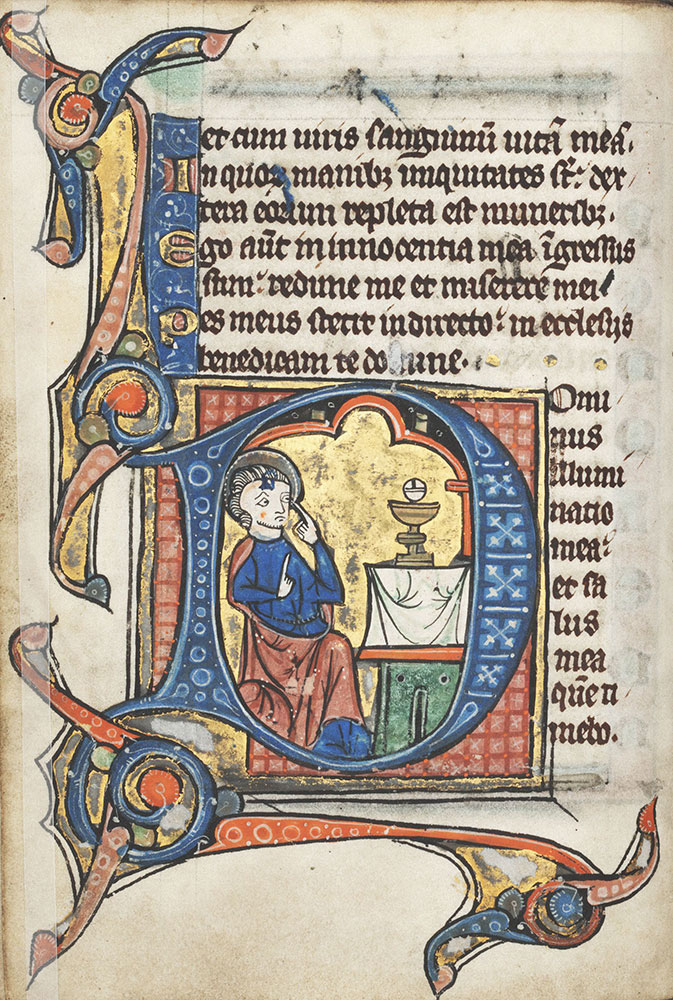 et cum uiris sanguinũ uitã meã.
In quoꝝ manibꝫ iniquitates st̃: dex
tera eorum repleta est muneribꝫ.
Ego aũt in innocentia mea ĩgressus
sum: redime me et miserere mei
Pes meus stetit in directo: in ecclesiis
benedicam te domine.
Domi
nus
illumi
natio
mea:
et sa
lus
mea
quẽ ti
mebo.